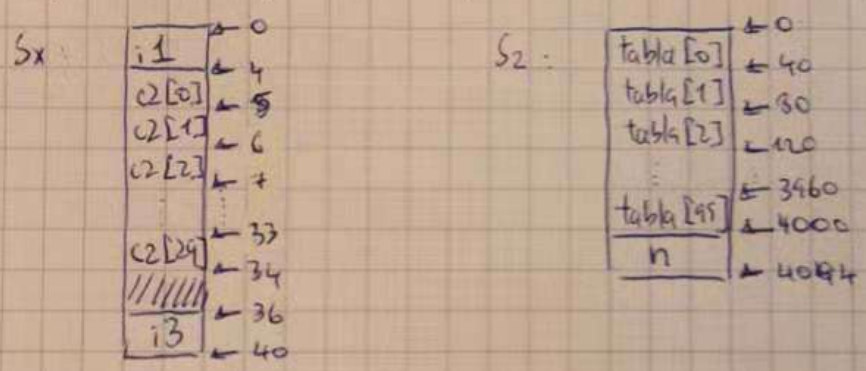 Sx :
0
i1
4
c2[0]
5
c2[1]
6
c2[2]
7
33
c2[29]
34
36
i3
40
S2 :
0
tabla[0]
40
tabla[1]
80
tabla[2]
120
3960
tabla[99]
4000
n
4004